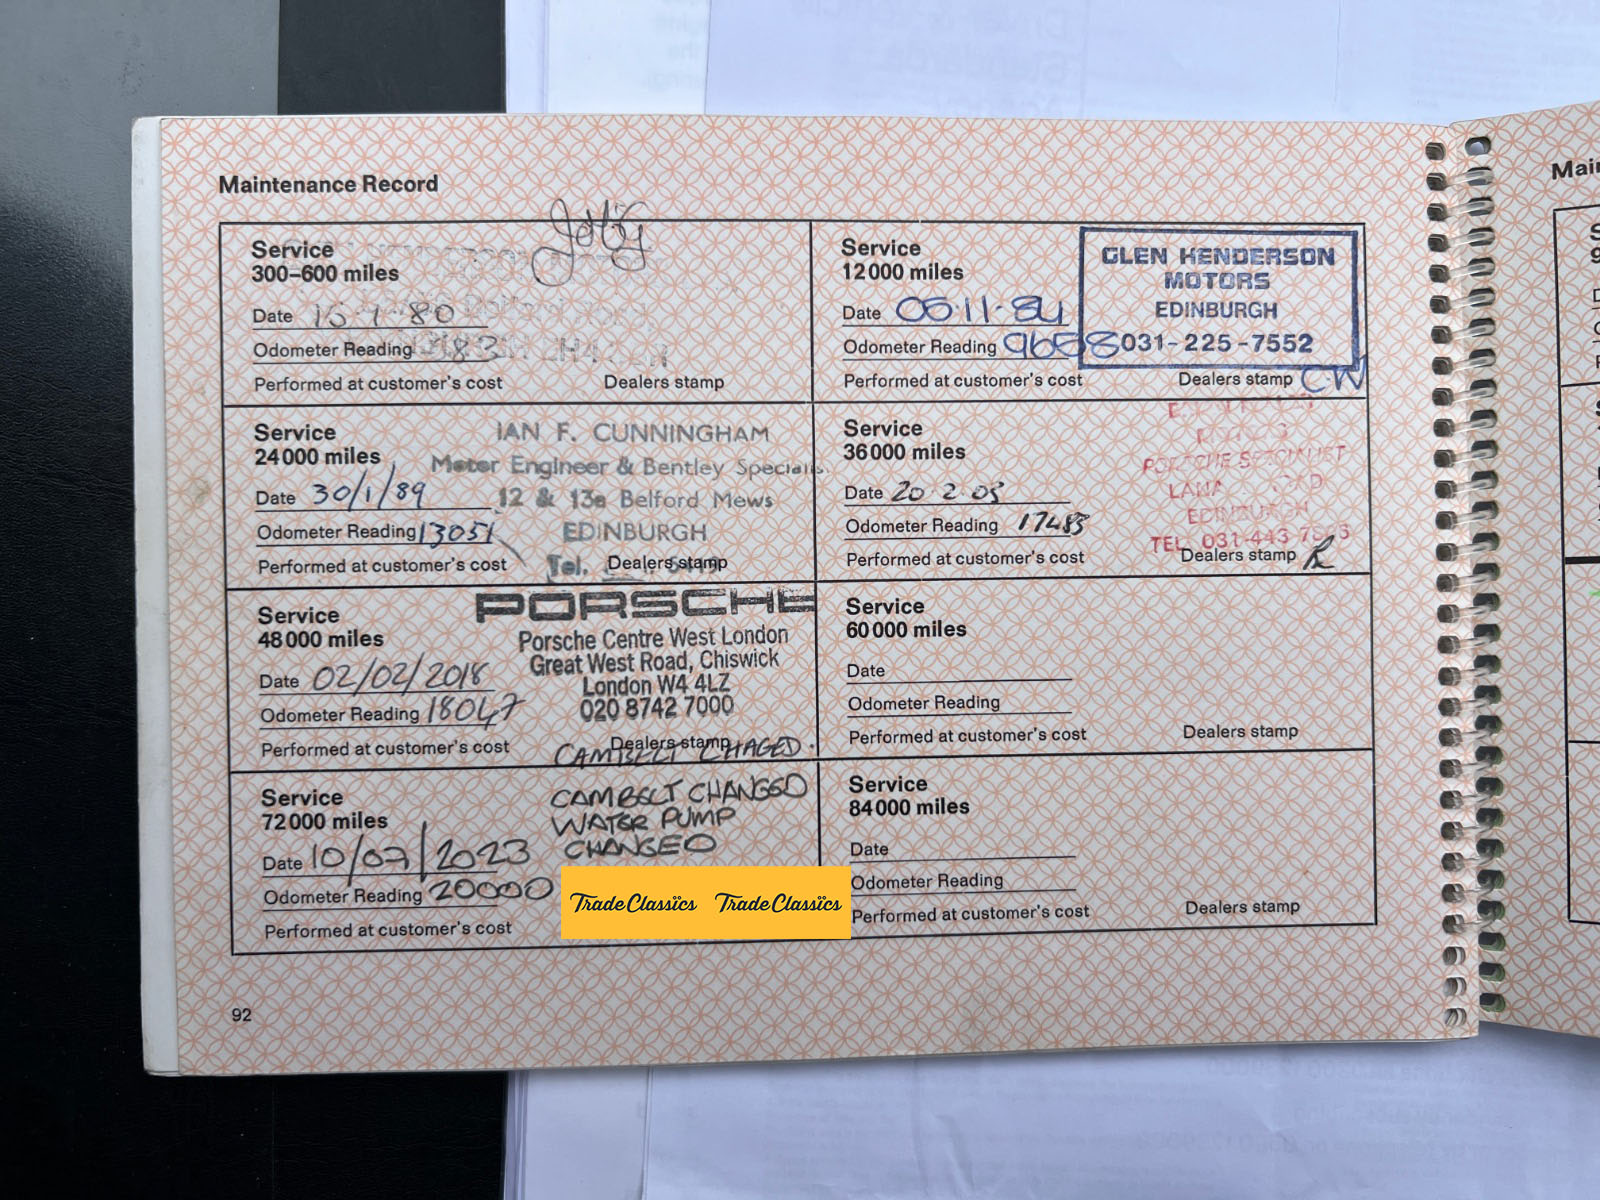 Maintenance Record
Service
300–600 miles
Date
Odometer Reading
Performed at customer's cost
Dealers stamp
Service
12 000 miles
Date 05·11·84
Odometer Reading 9658
Performed at customer's cost
GLEN HENDERSON
MOTORS
EDINBURGH
031-225-7552
Dealers stamp CW
Service
24 000 miles
Date 30/1/89
Odometer Reading 13051
Performed at customer's cost
IAN F. CUNNINGHAM
Motor Engineer & Bentley Specialis
12 & 13a Belford Mews
EDINBURGH
Tel.
Dealers stamp
Service
36 000 miles
Date 20·2·03
Odometer Reading 17483
Performed at customer's cost
PORSCHE SPECIALIST
EDINBURGH
TEL. 031-443
Dealers stamp
Service
48 000 miles
Date 02/02/2018
Odometer Reading 18047
Performed at customer's cost
PORSCHE
Porsche Centre West London
Great West Road, Chiswick
London W4 4LZ
020 8742 7000
Dealers stamp
CAMBELT CHAGED.
Service
60 000 miles
Date
Odometer Reading
Performed at customer's cost
Dealers stamp
Service
72 000 miles
Date 10/07/2023
Odometer Reading 20000
Performed at customer's cost
CAMBELT CHANGED
WATER PUMP
CHANGED
TradeClassics TradeClassics
Service
84 000 miles
Date
Odometer Reading
Performed at customer's cost
Dealers stamp
92
Mai